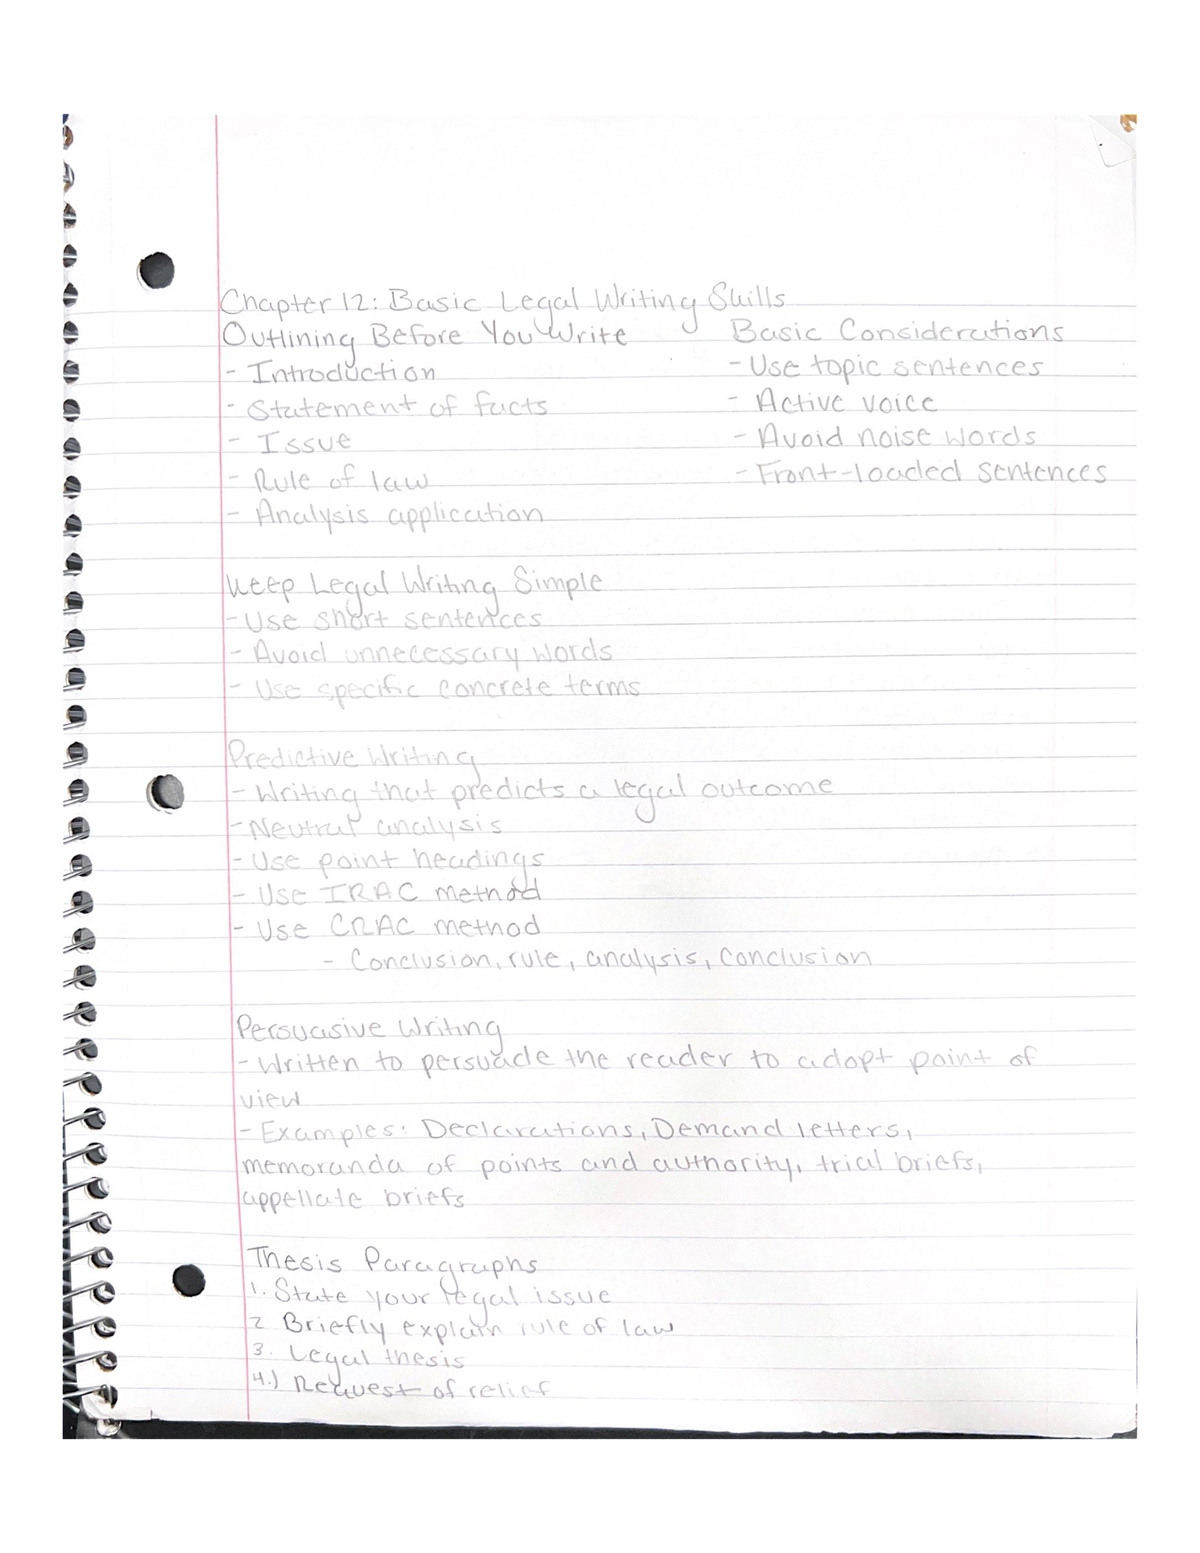 Chapter 12: Basic Legal Writing Skills
Outlining Before You Write
- Introduction
- Statement of facts
- Issue
- Rule of law
- Analysis application
Basic Considerations
- Use topic sentences
- Active voice
- Avoid noise words
- Front-loaded sentences
Keep Legal Writing Simple
- Use short sentences
- Avoid unnecessary words
- Use specific concrete terms
Predictive Writing
- Writing that predicts a legal outcome
- Neutral analysis
- Use point headings
- Use IRAC method
- Use CRAC method
- Conclusion, rule, analysis, conclusion
Persuasive Writing
- Written to persuade the reader to adopt point of
view
- Examples: Declarations, Demand letters,
memoranda of points and authority, trial briefs,
appellate briefs
Thesis Paragraphs
1. State your legal issue
2 Briefly explain rule of law
3. Legal thesis
4.) Request of relief